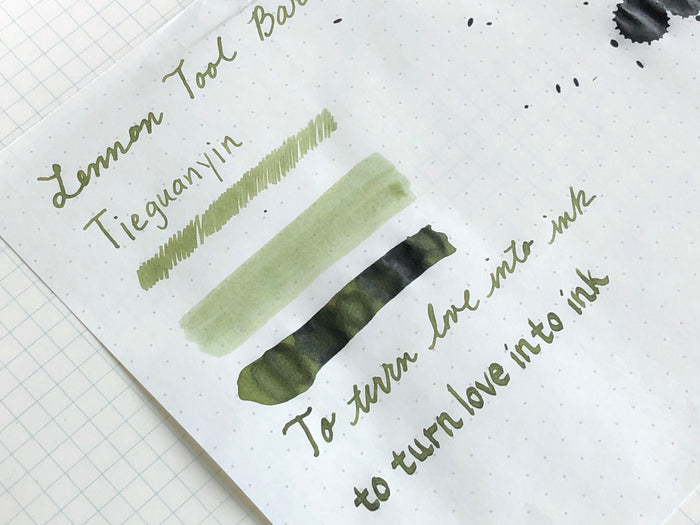 Lennon Tool Bar
Tieguanyin
To turn love into ink
to turn love into ink